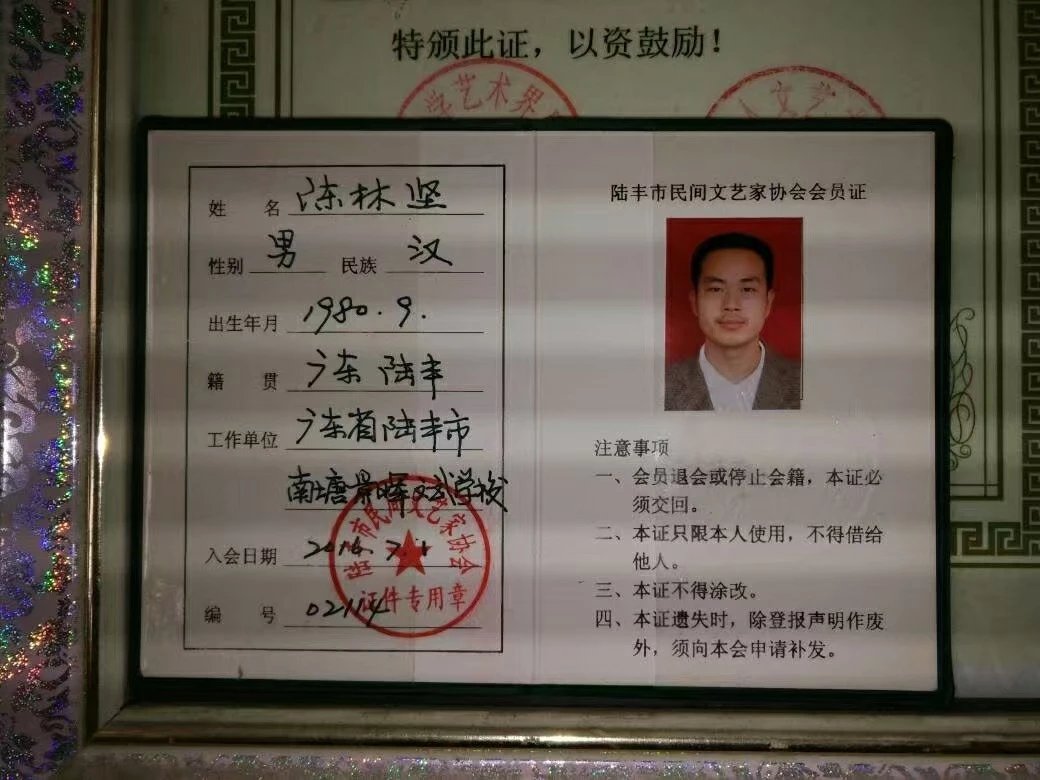 特颁此证，以资鼓励！
学艺术界
人文艺
姓名 陈林坚
性别 男 民族 汉
出生年月 1980.9.
籍贯 广东陆丰
工作单位 广东省陆丰市
南塘景晖文武学校
入会日期 2014.7.1
编号 02114
陆丰市民间文艺家协会
证件专用章
陆丰市民间文艺家协会会员证
注意事项
一、会员退会或停止会籍，本证必
须交回。
二、本证只限本人使用，不得借给
他人。
三、本证不得涂改。
四、本证遗失时，除登报声明作废
外，须向本会申请补发。